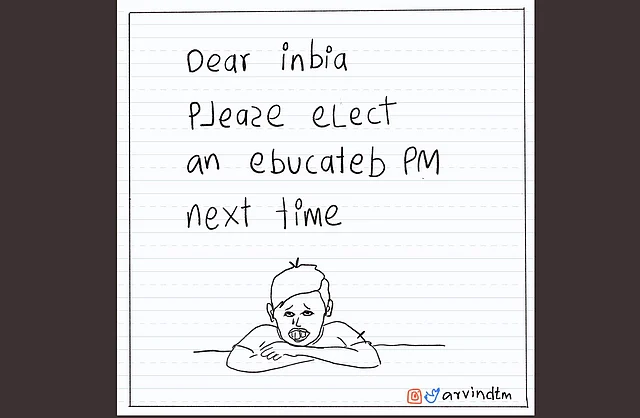 Dear inbia
PLeaze eLect
an ebucateb PM
next time
arvindtm